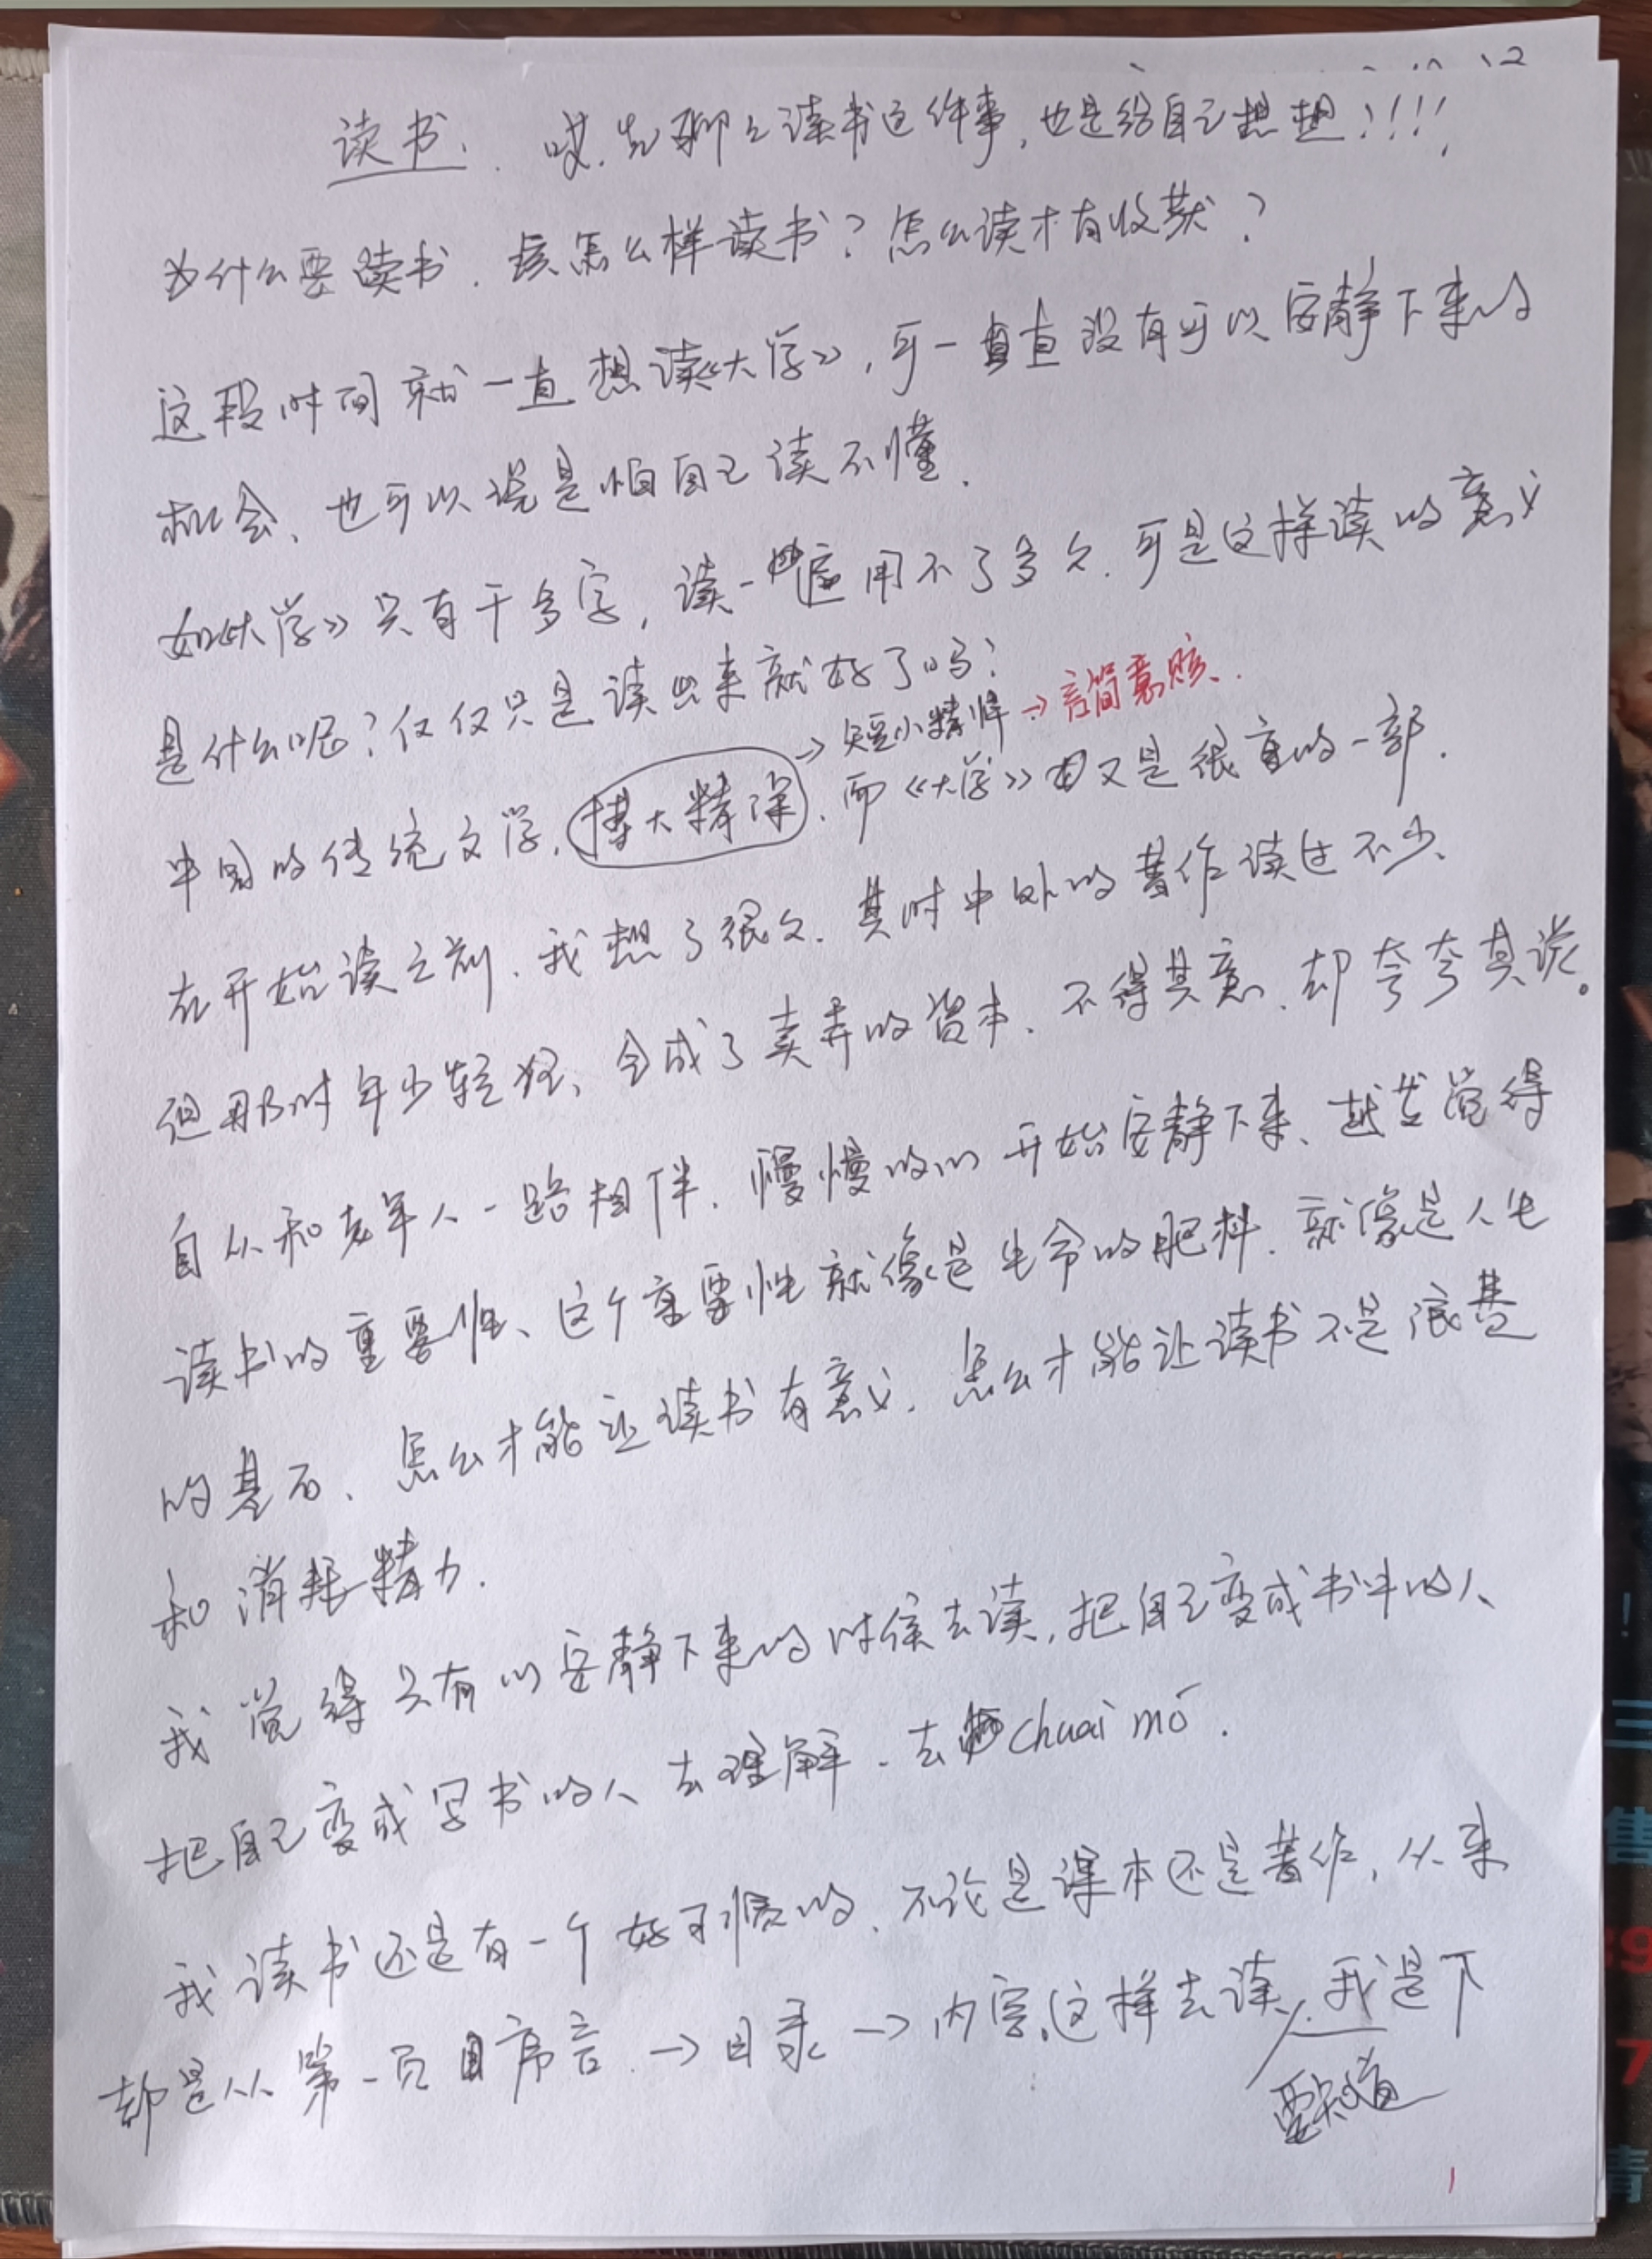 读书. 哎.先聊聊读书这件事,也是给自己想想!!!!
为什么要读书.该怎么样读书?怎么读才有收获?
这段时间就一直想读《大学》,可一直没有可以安静下来的
机会、也可以说是怕自己读不懂.
如《大学》只有千多字,读一遍用不了多久.可是这样读的意义
是什么呢?仅仅只是读出来就好了吗?
→短小精悍→言简意赅.
中国的传统文学,博大精深.而《大学》又是很重的一部.
在开始读之前.我想了很久.其时中外的著作读过不少、
但那时年少轻狂、全成了卖弄的资本、不得其意、却夸夸其谈。
自从和老年人一路相伴.慢慢的心开始安静下来、越发觉得
读书的重要性、这个重要性就像是生命的肥料.就像是人生
的基石、怎么才能让读书有意义.怎么才能让读书不是浪费
和消耗精力.
我觉得只有心安静下来的时侯去读,把自己变成书中的人
把自己变成写书的人去理解.去chuai mó.
我读书还是有一个好习惯的、不论是课本还是著作,从来
都是从第一页序言.→目录→内容,这样去读,我是下
要知道
1